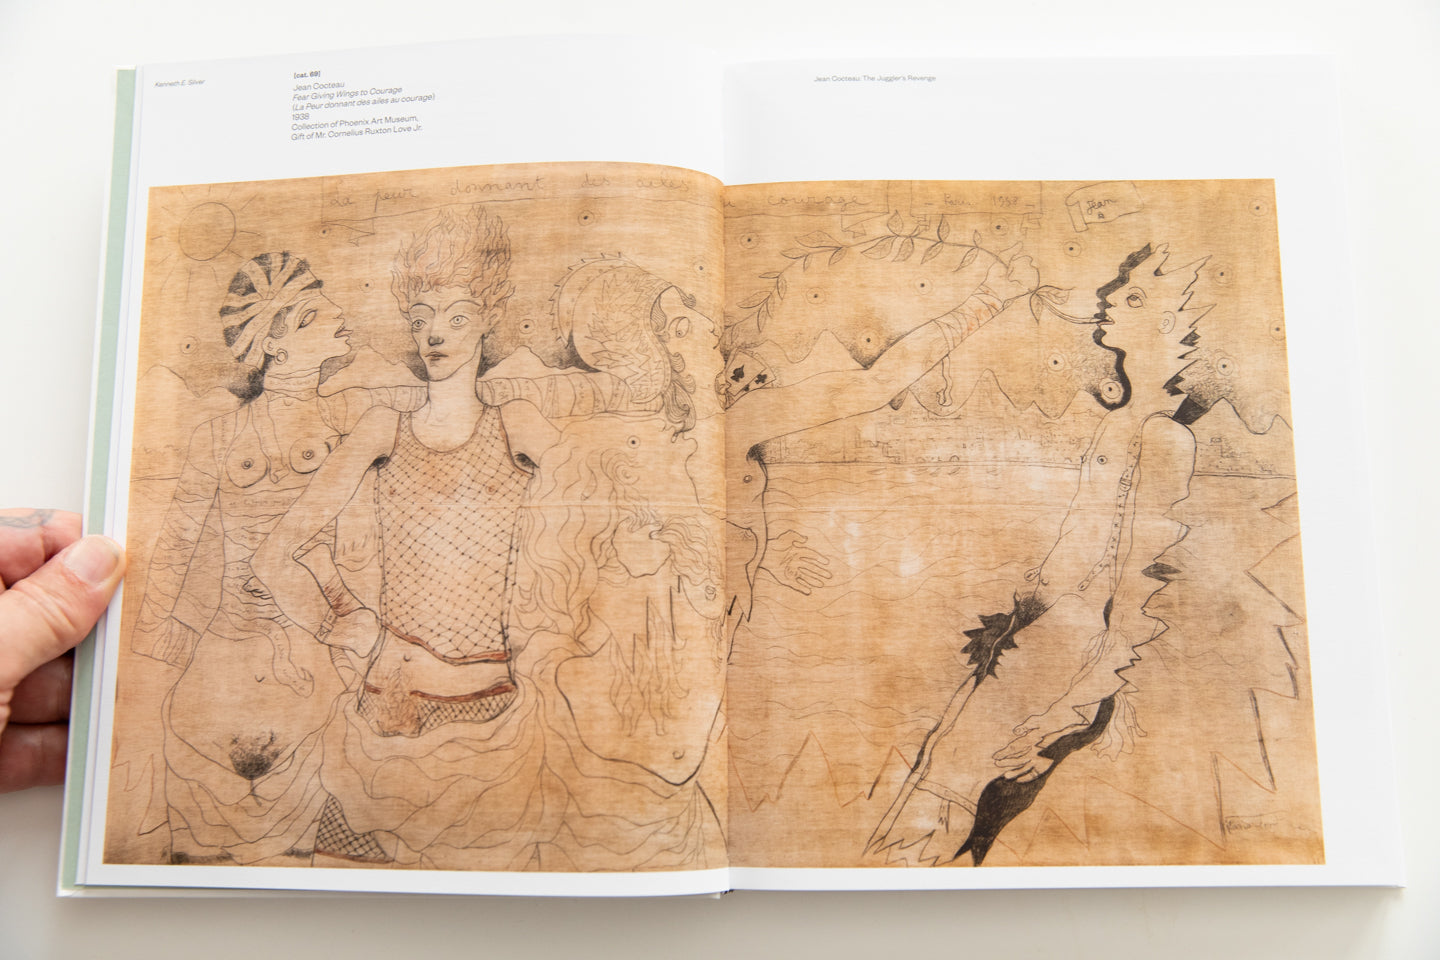 Kenneth E. Silver
[cat. 69]
Jean Cocteau
Fear Giving Wings to Courage
(La Peur donnant des ailes au courage)
1938
Collection of Phoenix Art Museum,
Gift of Mr. Cornelius Ruxton Love Jr.
Jean Cocteau: The Juggler's Revenge
La peur donnant des ailes
au courage
— Paris 1938 —
Jean